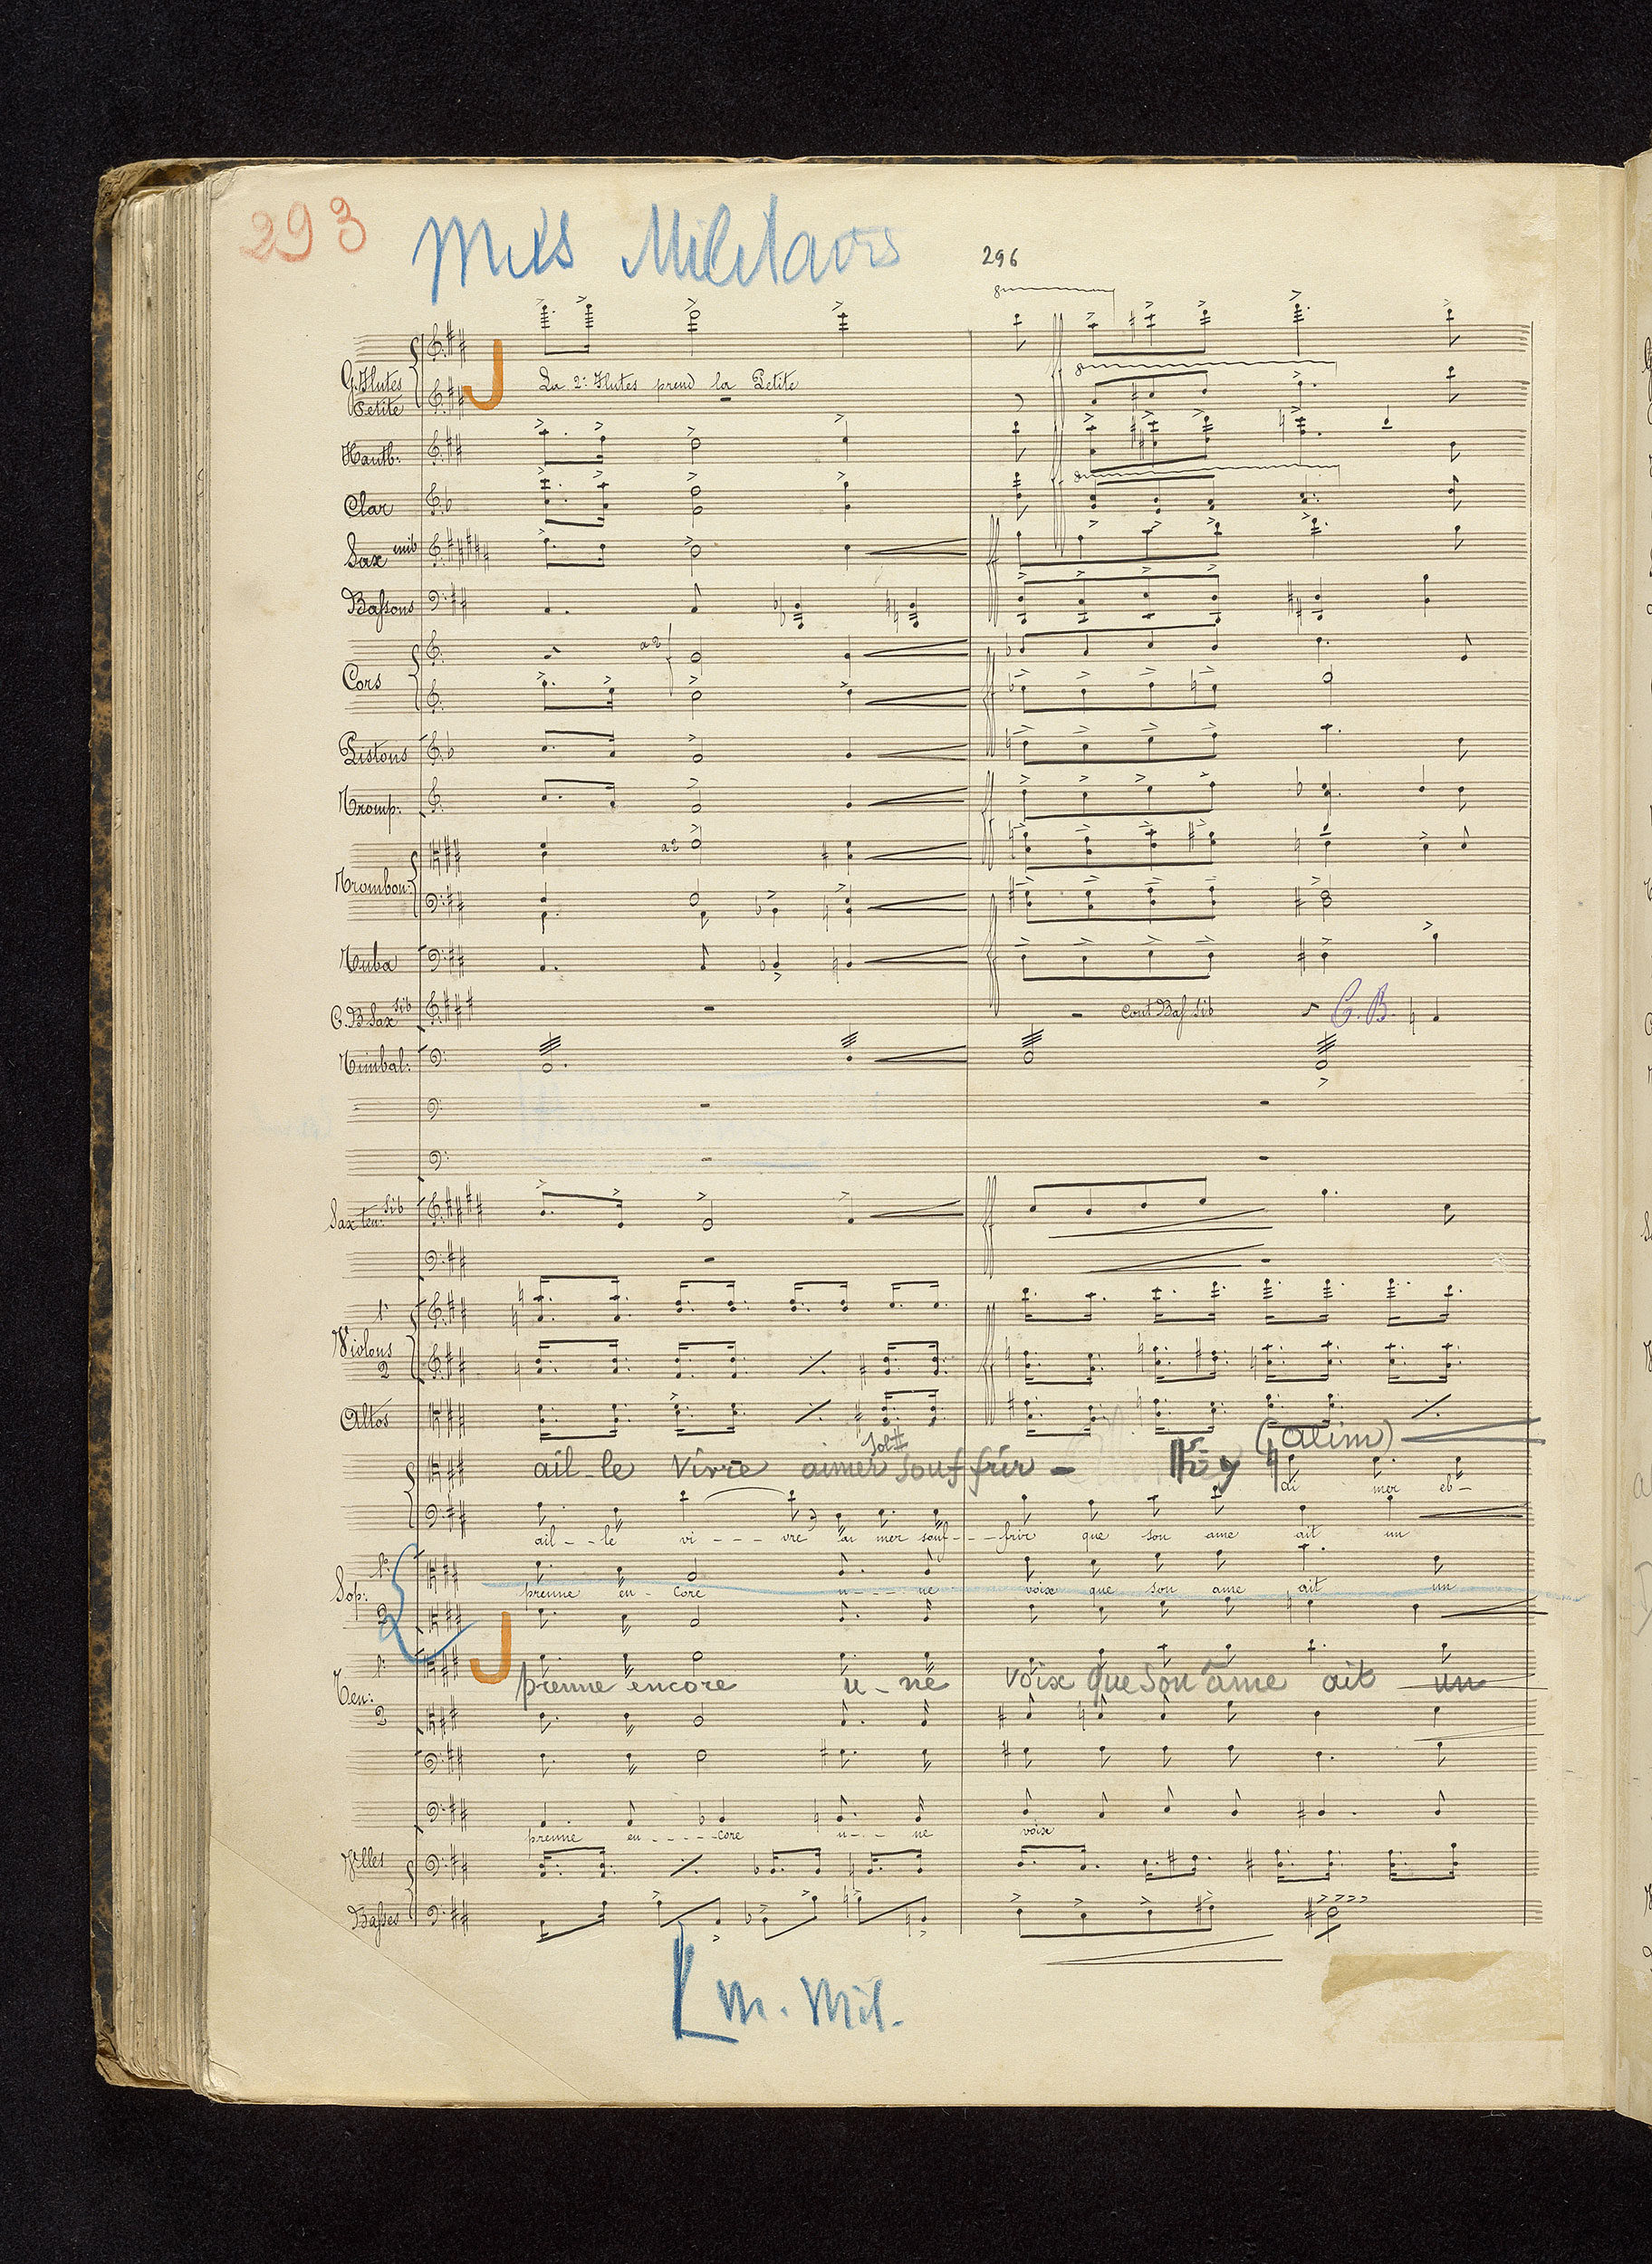 293
296
J
G. Flutes
La 2e Flutes prend la Petite
Petite
Hautb:
Clar
Sax mib
Bassons
a 2
Cors
Pistons
Tromp:
a 2
Trombon:
Tuba
C. B Sax sib
Cont Bas sib
C. B.
Timbal:
Sax ten: sib
1r
Violons
2
Altos
Sol#
(alim)
ail-le vivre aimer souffrir -
ail - - le vi - - - vre ai mer souf - - - frir que son ame ait un
1o
Sop:
prenne en - core u - - - ne voix que son ame ait un
2
J
1r
prenne encore u - ne voix que son âme ait un
Ten:
2
prenne en - - - - - core u - - - ne voix
Vlles
Basses
m. mil.